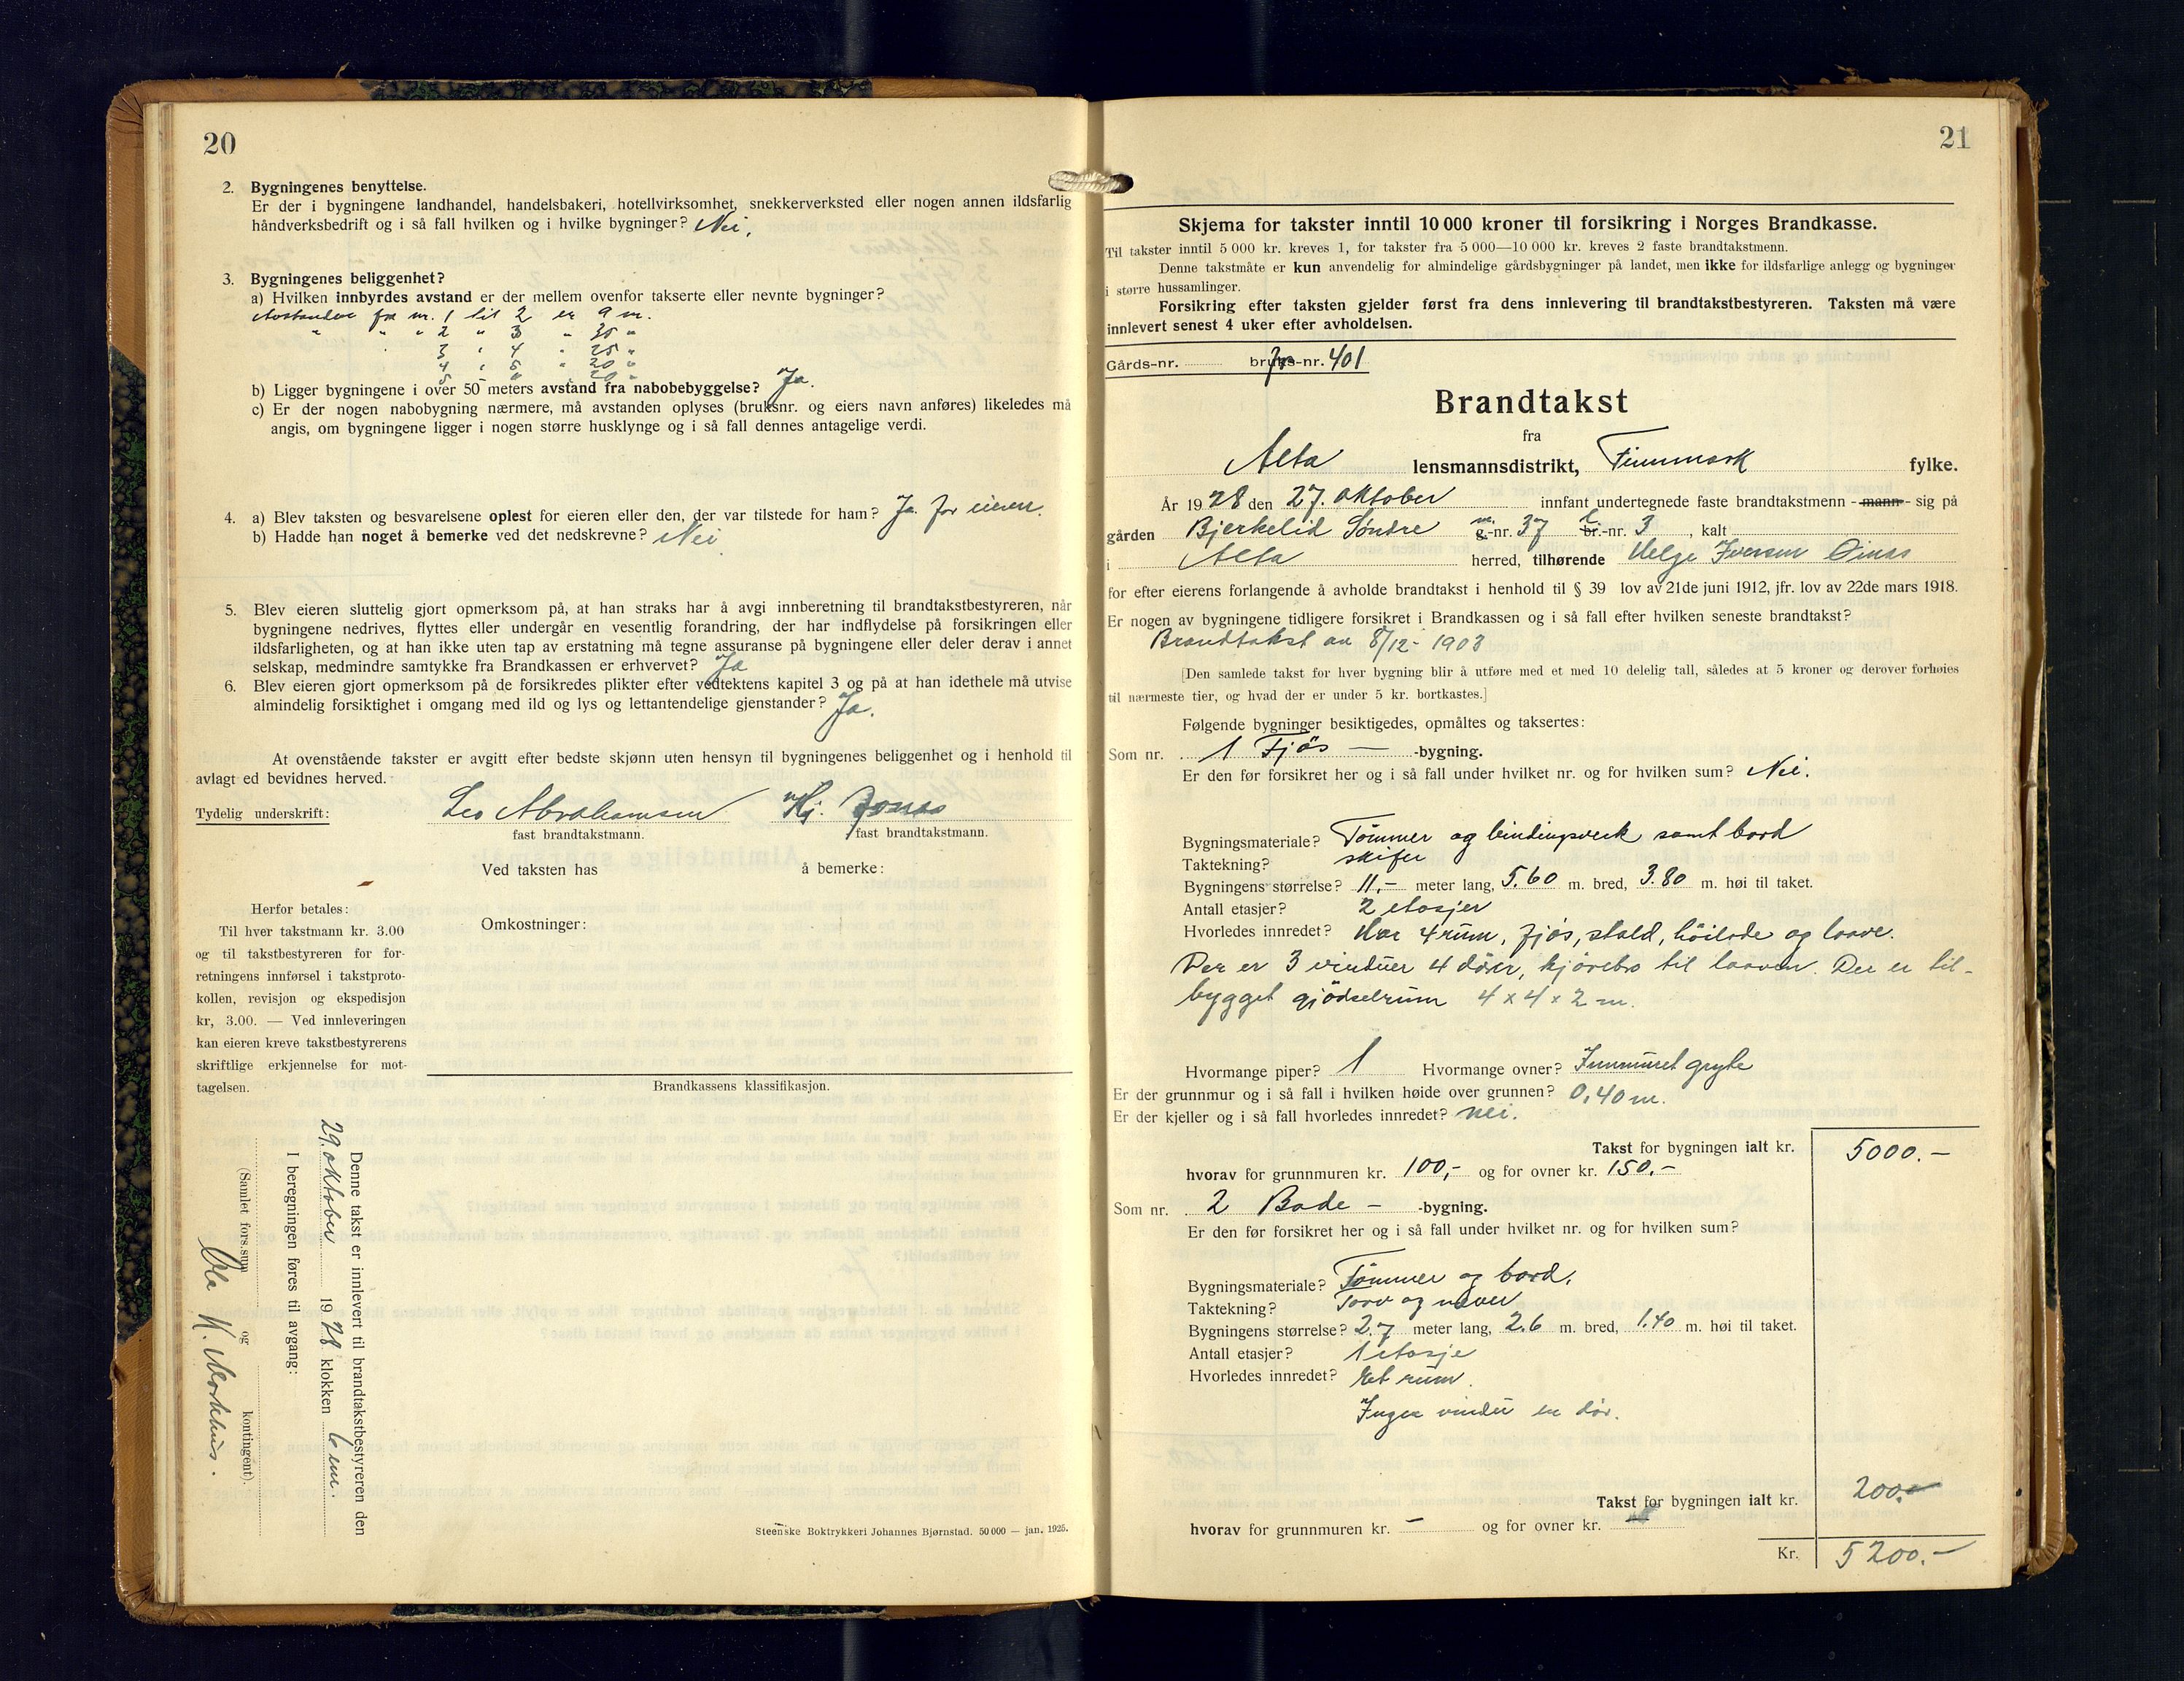 20
2. Bygningenes benyttelse.
Er der i bygningene landhandel, handelsbakeri, hotellvirksomhet, snekkerverksted eller nogen annen ildsfarlig
håndverksbedrift og i så fall hvilken og i hvilke bygninger? Nei.
3. Bygningenes beliggenhet?
a) Hvilken innbyrdes avstand er der mellem ovenfor takserte eller nevnte bygninger?
Avstanden fra nr. 1 til 2 er 9 m.
" " " 2 " 3 " 35 "
3 " 4 " 25 "
4 " 5 " 20 "
5 " 20 "
b) Ligger bygningene i over 50 meters avstand fra nabobebyggelse? Ja.
c) Er der nogen nabobygning nærmere, må avstanden oplyses (bruksnr. og eiers navn anføres) likeledes må
angis, om bygningene ligger i nogen større husklynge og i så fall dennes antagelige verdi.
4. a) Blev taksten og besvarelsene oplest for eieren eller den, der var tilstede for ham? Ja for eieren.
b) Hadde han noget å bemerke ved det nedskrevne? Nei
5. Blev eieren sluttelig gjort opmerksom på, at han straks har å avgi innberetning til brandtakstbestyreren, når
bygningene nedrives, flyttes eller undergår en vesentlig forandring, der har indflydelse på forsikringen eller
ildsfarligheten, og at han ikke uten tap av erstatning må tegne assuranse på bygningene eller deler derav i annet
selskap, medmindre samtykke fra Brandkassen er erhvervet? Ja
6. Blev eieren gjort opmerksom på de forsikredes plikter efter vedtektens kapitel 3 og på at han idethele må utvise
almindelig forsiktighet i omgang med ild og lys og lettantendelige gjenstander? Ja.
At ovenstående takster er avgitt efter bedste skjønn uten hensyn til bygningenes beliggenhet og i henhold til
avlagt ed bevidnes herved.
Tydelig underskrift: Leo Abrahamsen Hj. Jonas
fast brandtakstmann. fast brandtakstmann.
Ved taksten has å bemerke:
Omkostninger:
Herfor betales:
Til hver takstmann kr. 3.00
og til takstbestyreren for for-
retningens innførsel i takstproto-
kollen, revisjon og ekspedisjon
kr, 3.00. — Ved innleveringen
kan eieren kreve takstbestyrerens
skriftlige erkjennelse for mot-
tagelsen.
Brandkassens klassifikasjon.
Denne takst er innlevert til brandtakstbestyreren den
29. oktober 1928 klokken 6 em.
I beregningen føres til avgang:
(Samlet fors.sum og kontingent).
Ola K.
Steenske Boktrykkeri Johannes Bjørnstad. 50 000 — jan. 1925.
21
Skjema for takster inntil 10 000 kroner til forsikring i Norges Brandkasse.
Til takster inntil 5 000 kr. kreves 1, for takster fra 5 000—10 000 kr. kreves 2 faste brandtakstmenn.
Denne takstmåte er kun anvendelig for almindelige gårdsbygninger på landet, men ikke for ildsfarlige anlegg og bygninger
i større hussamlinger.
Forsikring efter taksten gjelder først fra dens innlevering til brandtakstbestyreren. Taksten må være
innlevert senest 4 uker efter avholdelsen.
Gårds-nr. bruks-nr. 401
Brandtakst
fra
Alta lensmannsdistrikt, Finnmark fylke.
År 1928 den 27. oktober innfant undertegnede faste brandtakstmenn - mann - sig på
gården Bjerkelid Søndre m. g.-nr. 37 l. br.-nr. 3, kalt
i Alta herred, tilhørende Helge Iversen Oinas
for efter eierens forlangende å avholde brandtakst i henhold til § 39 lov av 21de juni 1912, jfr. lov av 22de mars 1918.
Er nogen av bygningene tidligere forsikret i Brandkassen og i så fall efter hvilken seneste brandtakst?
Brandtakst av 8/12- 1903
[Den samlede takst for hver bygning blir å utføre med et med 10 delelig tall, således at 5 kroner og derover forhøies
til nærmeste tier, og hvad der er under 5 kr. bortkastes.]
Følgende bygninger besiktigedes, opmåltes og taksertes:
Som nr. 1 Fjøs — -bygning.
Er den før forsikret her og i så fall under hvilket nr. og for hvilken sum? Nei.
Bygningsmateriale? Tømmer og bindingsverk samt bord
Taktekning? skifer
Bygningens størrelse? 11,- meter lang, 5.60 m. bred, 3.80 m. høi til taket.
Antall etasjer? 2 etasjer
Hvorledes innredet? Har 4 rum, fjøs, stald, høilade og laave.
Der er 3 vinduer 4 dører, kjørebro til laaven. Der er til-
bygget gjødselrum 4 x 4 x 2 m.
Hvormange piper? 1 Hvormange ovner? Innmuret gryte
Er der grunnmur og i så fall i hvilken høide over grunnen? 0,40 m.
Er der kjeller og i så fall hvorledes innredet? nei.
Takst for bygningen ialt kr. 5000.-
hvorav for grunnmuren kr. 100,- og for ovner kr. 150.-
Som nr. 2 Bade - -bygning.
Er den før forsikret her og i så fall under hvilket nr. og for hvilken sum?
Bygningsmateriale? Tømmer og bord.
Taktekning? Torv og never
Bygningens størrelse? 2.7 meter lang, 2.6 m. bred, 1.40 m. høi til taket.
Antall etasjer? 1 etasje
Hvorledes innredet? Et rum.
Ingen vindu en dør.
Takst for bygningen ialt kr. 200.-
hvorav for grunnmuren kr. - og for ovner kr. -
Kr. 5200.-